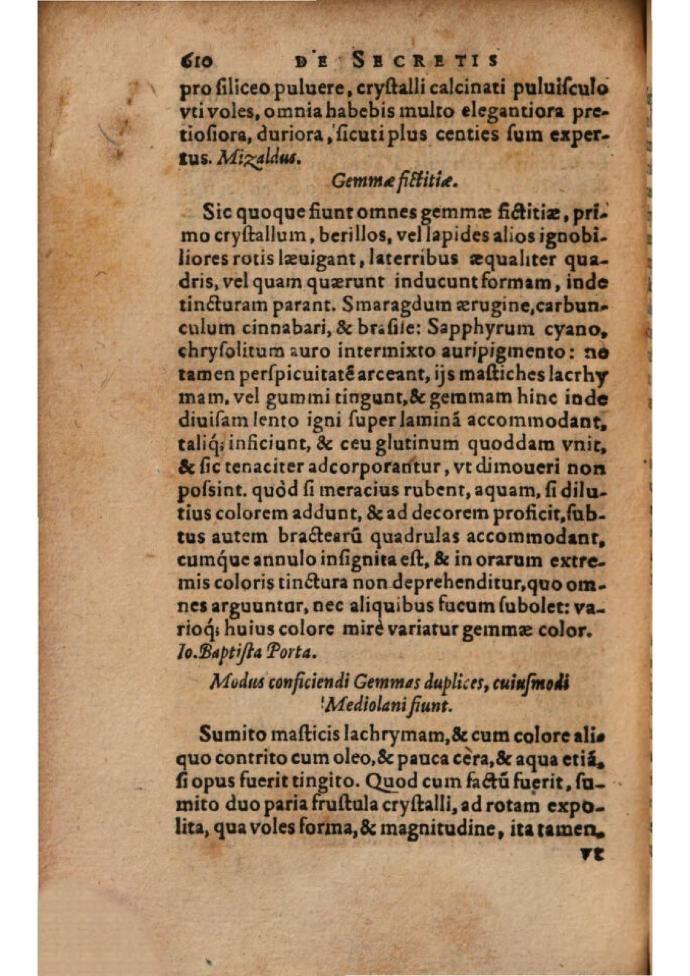 610 DE SECRETIS
pro ſiliceo puluere, cryſtalli calcinati puluiſculo
vti voles, omnia habebis multo elegantiora pre-
tioſiora, duriora, ſicuti plus centies ſum exper-
tus. Mizaldus.
Gemmæ fictitiæ.
Sic quoque fiunt omnes gemmæ fictitiæ, pri-
mo cryſtallum, berillos, vel lapides alios ignobi-
liores rotis læuigant, laterribus æqualiter qua-
dris, vel quam quærunt inducunt formam, inde
tincturam parant. Smaragdum ærugine, carbun-
culum cinnabari, & braſile: Sapphyrum cyano,
chryſolitum auro intermixto auripigmento: ne
tamen perſpicuitatē arceant, ijs maſtiches lacrhy
mam, vel gummi tingunt, & gemmam hinc inde
diuiſam lento igni ſuper laminá accommodant,
taliq́; inficiunt, & ceu glutinum quoddam vnit,
& ſic tenaciter adcorporantur, vt dimoueri non
poſsint. quòd ſi meracius rubent, aquam, ſi dilu-
tius colorem addunt, & ad decorem proficit, ſub-
tus autem bractearū quadrulas accommodant,
cumq́ue annulo inſignita eſt, & in orarum extre-
mis coloris tinctura non deprehenditur, quo om-
nes arguuntur, nec aliquibus fucum ſubolet: va-
rioq́; huius colore mirè variatur gemmæ color.
Io. Baptiſta Porta.
Modus conficiendi Gemmas duplices, cuiuſmodi
Mediolani fiunt.
Sumito maſticis lachrymam, & cum colore ali-
quo contrito cum oleo, & pauca cèra, & aqua etiá,
ſi opus fuerit tingito. Quod cum factū fuerit, ſu-
mito duo paria fruſtula cryſtalli, ad rotam expo-
lita, qua voles forma, & magnitudine, ita tamen,
vt